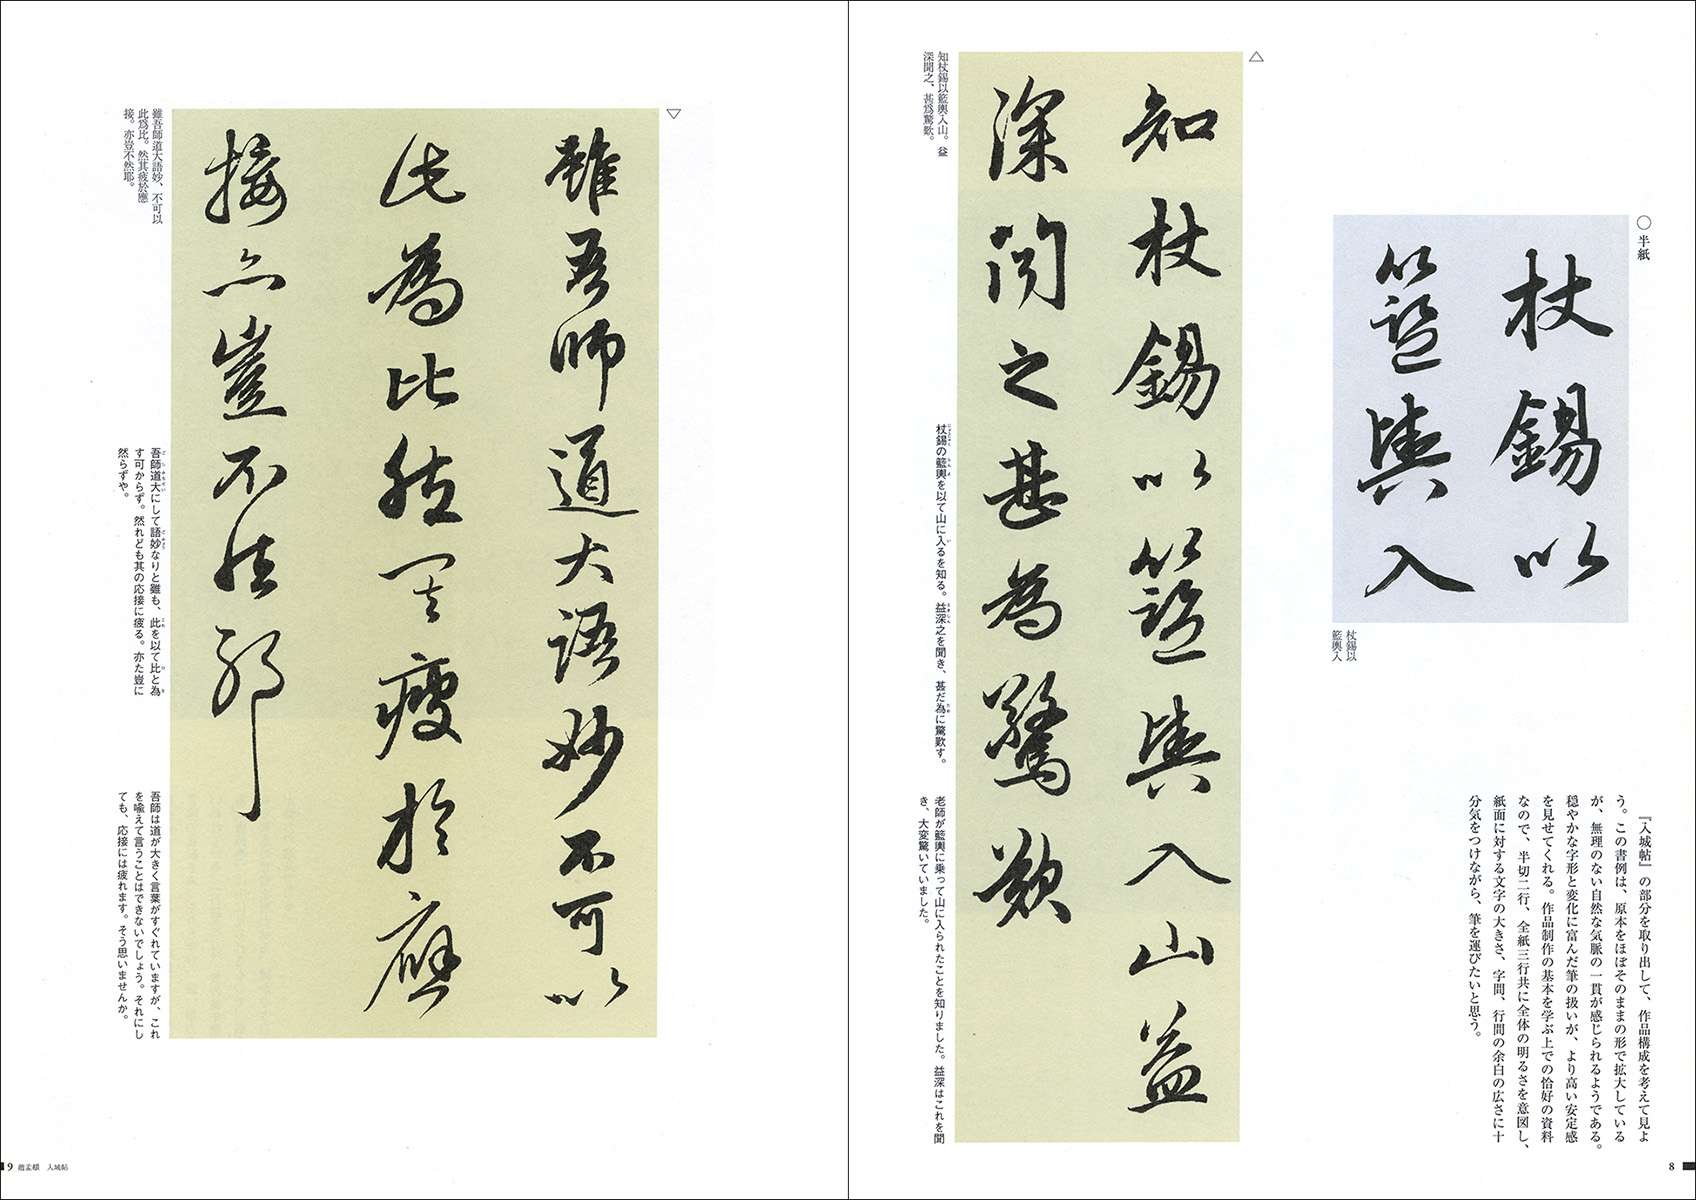 ○半紙
杖錫以
籃輿入
杖錫以
籃輿入
『入城帖』の部分を取り出して、作品構成を考えて見よ
う。この書例は、原本をほぼそのままの形で拡大している
が、無理のない自然な気脈の一貫が感じられるようである。
穏やかな字形と変化に富んだ筆の扱いが、より高い安定感
を見せてくれる。作品制作の基本を学ぶ上での恰好の資料
なので、半切二行、全紙三行共に全体の明るさを意図し、
紙面に対する文字の大きさ、字間、行間の余白の広さに十
分気をつけながら、筆を運びたいと思う。
△
知杖錫以籃輿入山益
深聞之甚為驚歎
知杖錫以籃輿入山。益
深聞之、甚爲驚歎。
杖錫の籃輿を以て山に入るを知る。益深之を聞き、甚だ為に驚歎す。
老師が籃輿に乗って山に入られたことを知りました。益深はこれを聞
き、大変驚いていました。
8
▽
雖吾師道大語妙不可以
此為比然其疲於應
接亦豈不然耶
雖吾師道大語妙、不可以
此爲比。然其疲於應
接。亦豈不然耶。
吾師道大にして語妙なりと雖も、此を以て比と為
す可からず。然れども其の応接に疲る。亦た豈に
然らずや。
吾師は道が大きく言葉がすぐれていますが、これ
を喩えて言うことはできないでしょう。それにし
ても、応接には疲れます。そう思いませんか。
9 趙孟頫 入城帖